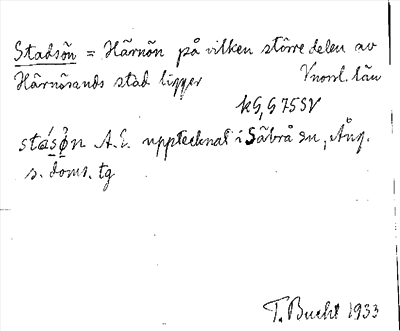 Stadsön = Härnön på vilken större delen av
Härnösands stad ligger Vnorrl. län
kG, G75SV
A. E. upptecknat i Säbrå sn, Ång.
s. doms. tg
T. Bucht 1933